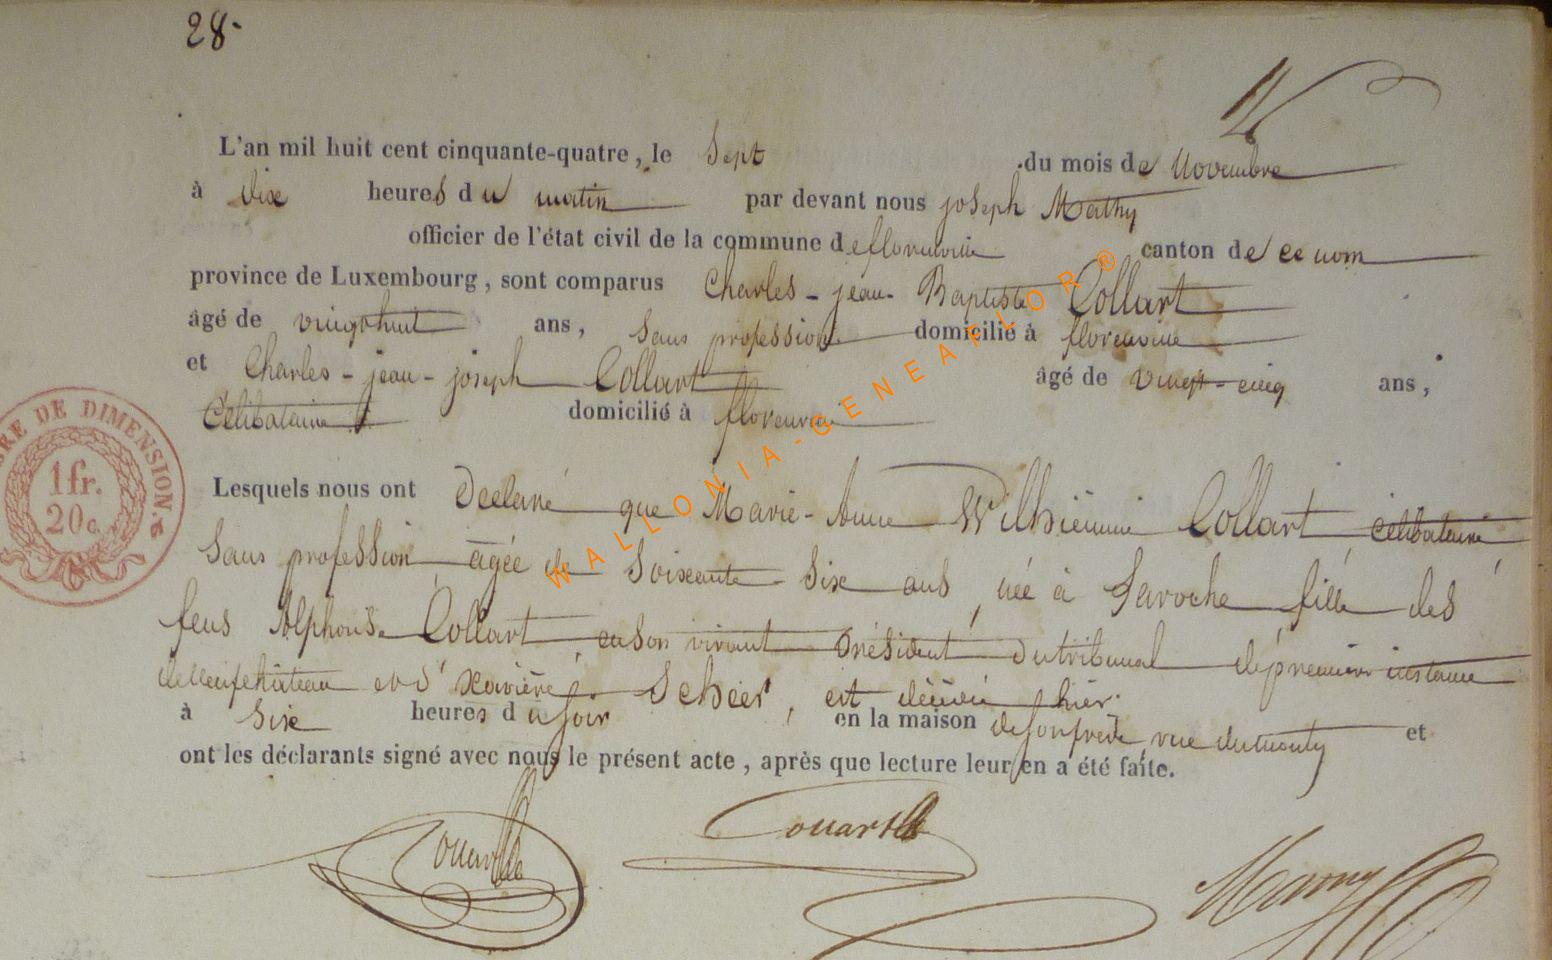 28.
L'an mil huit cent cinquante-quatre, le Sept du mois de Novembre
à dix heures du matin par devant nous joseph Mathy
officier de l'état civil de la commune de florenville canton de ce nom
province de Luxembourg, sont comparus Charles-jean-Baptiste Collart
âgé de vingt huit ans, Sans profession domicilié à florenville
et Charles-jean-joseph Collart âgé de vingt-cinq ans,
Célibataire domicilié à florenville
Lesquels nous ont Declaré que Marie-Anne Wilhiémine Collart célibataire
Sans profession agée de Soixante Six ans, née à Laroche fille des
feus Alphonse Collart, en son vivant Président du tribunal de première instance
de Neufchâteau et d' Xavière Scheer, est décédée hier
à Six heures du soir en la maison de son frère, rue et
ont les déclarants signé avec nous le présent acte, après que lecture leur en a été faite.
TIMBRE DE DIMENSION.
1 fr.
20 c.
WALLONIA-GENEAFLOR®